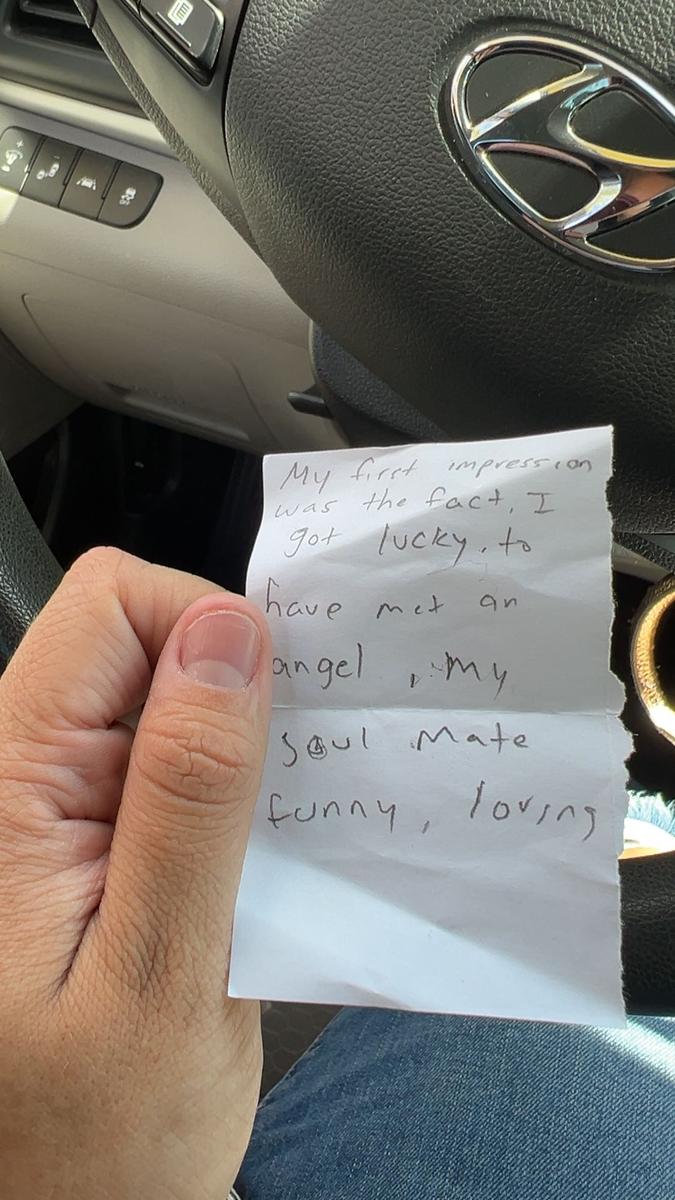 My first impression
was the fact, I
got lucky, to
have met an
angel, My
soul Mate
funny, loving